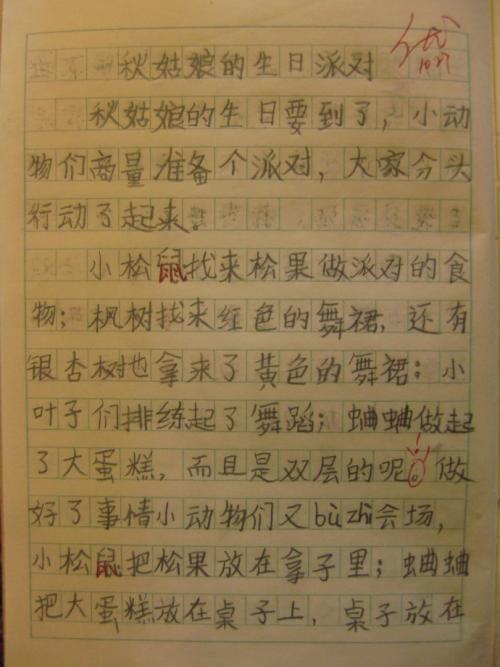 优
秋姑娘的生日派对
秋姑娘的生日要到了,小动
物们商量准备个派对,大家分头
行动了起来。
小松鼠找来松果做派对的食
物;枫树找来红色的舞裙,还有
银杏树也拿来了黄色的舞裙;小
叶子们排练起了舞蹈;蛐蛐做起
了大蛋糕,而且是双层的呢。做
好了事情小动物们又bùzhì会场,
小松鼠把松果放在拿子里;蛐蛐
把大蛋糕放在桌子上,桌子放在